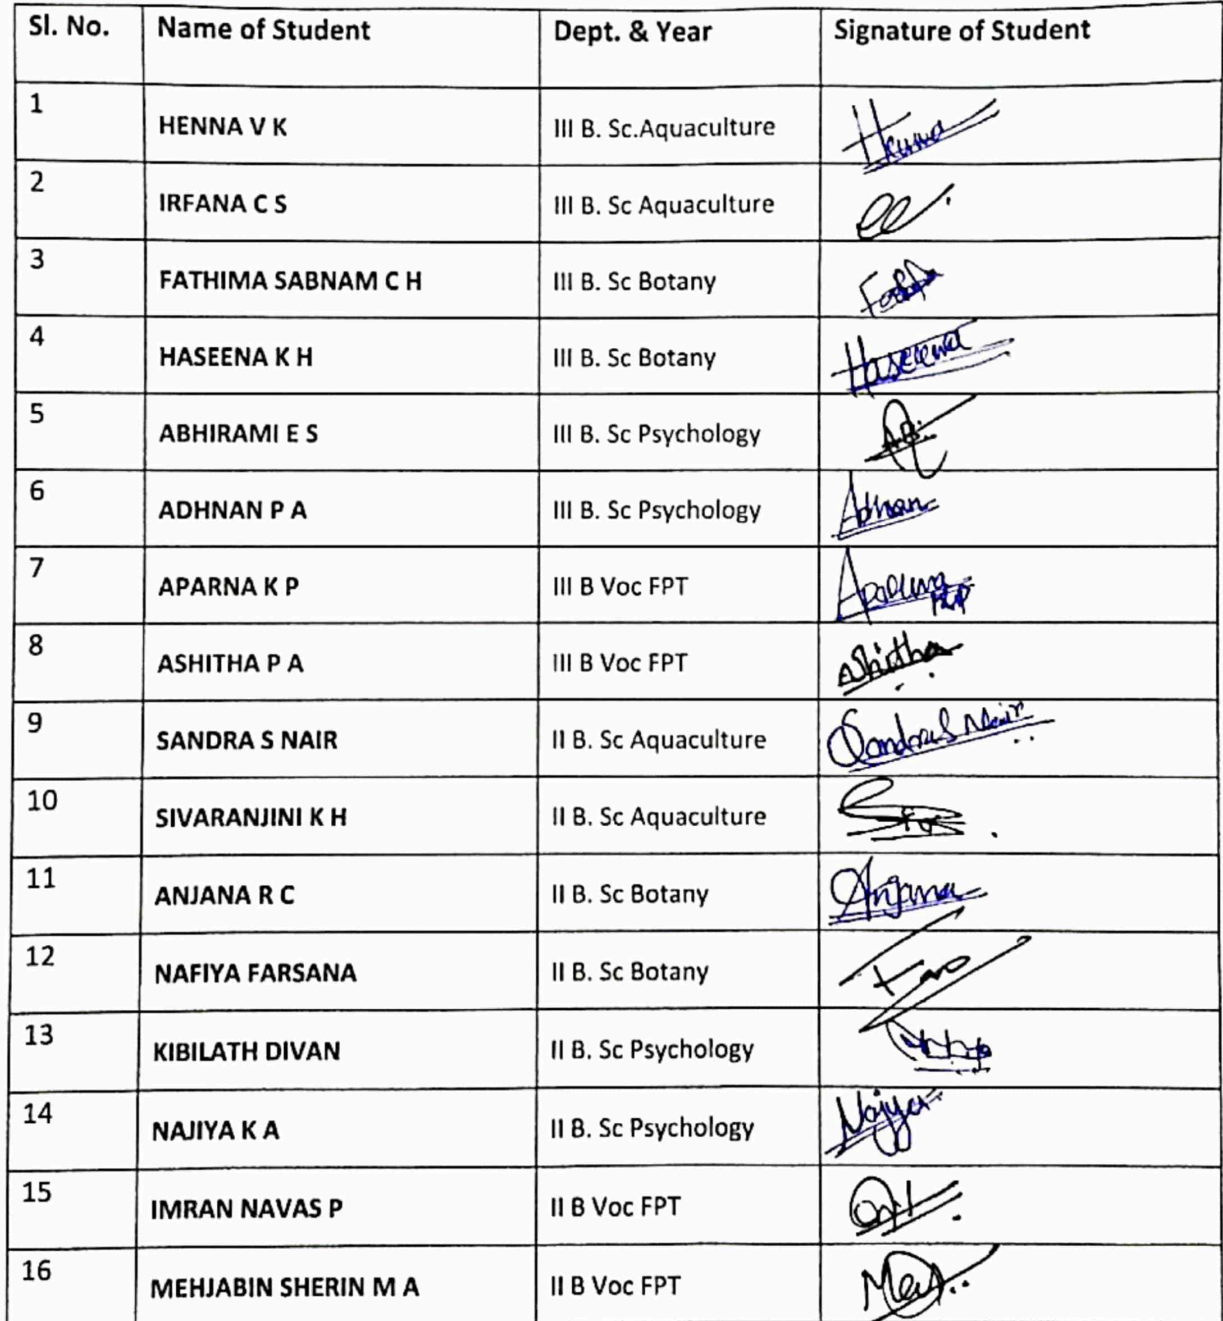 Sl. No. Name of Student Dept. & Year Signature of Student
1 HENNA V K III B. Sc.Aquaculture Henna
2 IRFANA C S III B. Sc Aquaculture
3 FATHIMA SABNAM C H III B. Sc Botany
4 HASEENA K H III B. Sc Botany Haseena
5 ABHIRAMI E S III B. Sc Psychology
6 ADHNAN P A III B. Sc Psychology Adhnan
7 APARNA K P III B Voc FPT
8 ASHITHA P A III B Voc FPT Ashitha
9 SANDRA S NAIR II B. Sc Aquaculture Sandra S Nair
10 SIVARANJINI K H II B. Sc Aquaculture
11 ANJANA R C II B. Sc Botany Anjana
12 NAFIYA FARSANA II B. Sc Botany
13 KIBILATH DIVAN II B. Sc Psychology
14 NAJIYA K A II B. Sc Psychology
15 IMRAN NAVAS P II B Voc FPT
16 MEHJABIN SHERIN M A II B Voc FPT